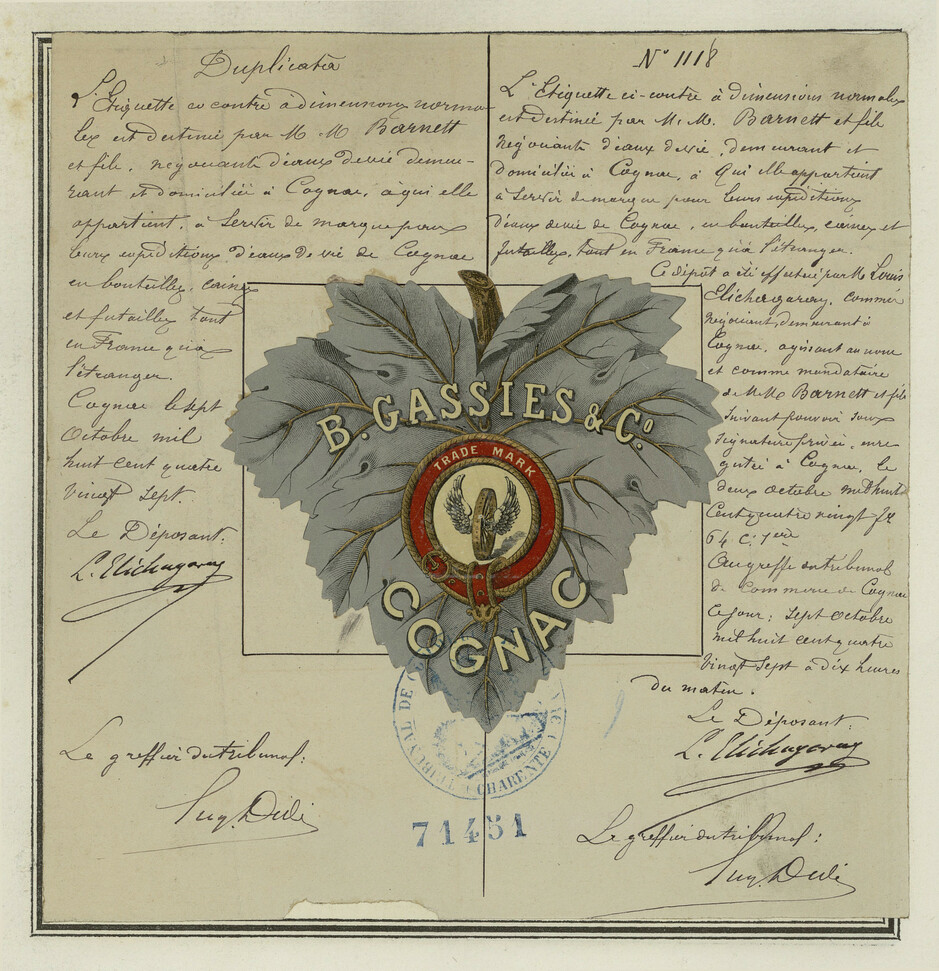 Duplicata
L'Etiquette ci contre à dimensions norma-
les est destinée par M M Barnett
et fils, négociants d'eaux de vie demeu-
rant et domiciliés à Cognac, à qui elle
appartient, à servir de marque pour
leurs expéditions d'eaux de vie de Cognac
en bouteilles, caisses
et futailles tant
en France qu'à
l'étranger.
Cognac le sept
Octobre mil
huit cent quatre
vingt sept.
Le Déposant:
L. Elichagaray
Le greffier du tribunal:
N° 1118
L'Etiquette ci-contre à dimensions normales
est destinée par M. M. Barnett et fils
négociants d'eaux de vie, demeurant et
domiciliés à Cognac, à qui elle appartient
à servir de marque pour leurs expéditions
d'eaux de vie de Cognac, en bouteilles, caisses et
futailles, tant en France qu'à l'étranger.
Ce dépôt a été effectué par M. Louis
Elichagaray, commis
négociant, demeurant à
Cognac, agissant au nom
et comme mandataire
de M.M. Barnett et fils
suivant pouvoir sous
signature privée, enre
gistré à Cognac, le
deux octobre mil huit
cent quatre vingt
64 C.
Au greffe du tribunal
de Commerce de Cognac
ce jour, sept octobre
mil huit cent quatre
vingt sept à dix heures
du matin.
Le Déposant
L. Elichagaray
Le greffier du tribunal:
B. GASSIES & Co
TRADE MARK
COGNAC
TRIBUNAL DE
CHARENTE
71451